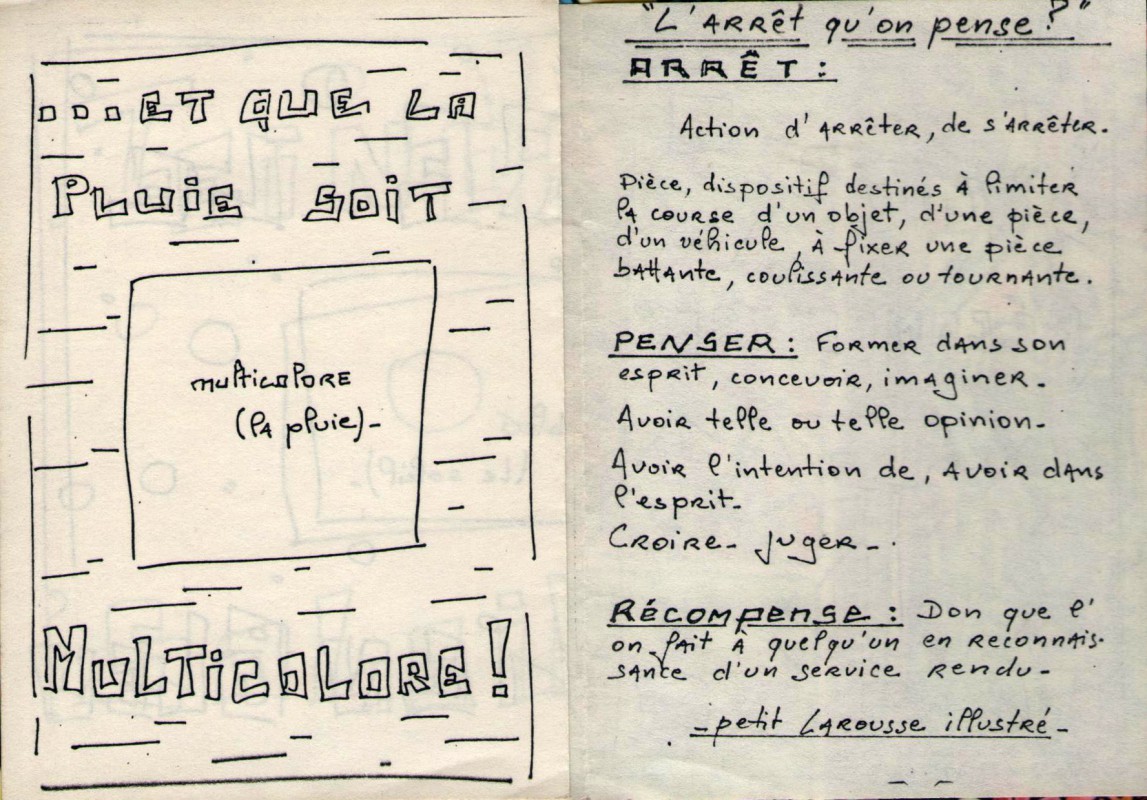 ...ET QUE LA
PLUIE SOIT
multicolore
(la pluie)-
MULTICOLORE!
"L'ARRêt qu'on pense?"
ARRÊT:
Action d'ARRêter, de s'ARRêter.
Pièce, dispositif destinés à limiter
la course d'un objet, d'une pièce,
d'un véhicule, à fixer une pièce
battante, coulissante ou tournante.
PENSER: Former dans son
esprit, concevoir, imaginer.
Avoir telle ou telle opinion-
Avoir l'intention de, avoir dans
l'esprit-
Croire- juger-.
Récompense: Don que l'
on fait à quelqu'un en reconnais-
sance d'un service rendu-
-petit Larousse illustré-